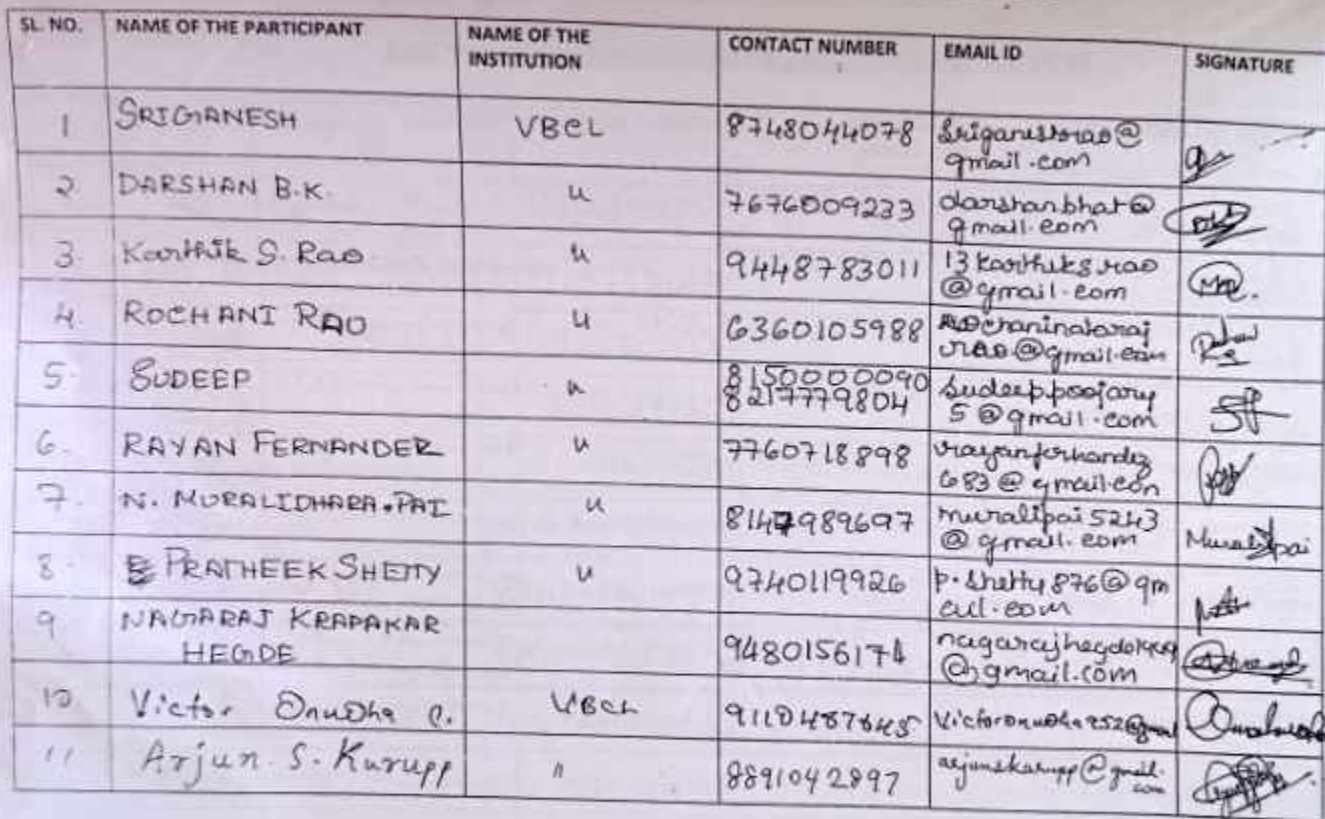 SL. NO. NAME OF THE PARTICIPANT NAME OF THE INSTITUTION CONTACT NUMBER EMAIL ID SIGNATURE
1 SRIGANESH VBCL 8748044078 sriganeshrao@
gmail.com
2 DARSHAN B.K. " 7676009233 darshanbhat@
gmail.com
3. Karthik S. Rao " 9448783011 13karthiksrao
@gmail.com
4. ROCHANI RAO " 6360105988 rochaninataraj
rao@gmail.com
5. SUDEEP " 8150000090
8217779804 sudeeppoojary
5@gmail.com
6. RAYAN FERNANDER " 7760718898 rayanfernandez
683@gmail.com
7. N. MURALIDHARA.PAI " 8147989697 muralipai5243
@gmail.com Muralipai
8. PRATHEEK SHETTY " 9740119926 p.shetty876@gm
ail.com
9. NAGARAJ KRAPAKAR
HEGDE 9480156174 @gmail.com
10 Victor Onuoha C. VBCL victoronuoha952@gmail
11 Arjun S. Kurupp " 8891042897 arjunskurupp@gmail.
com